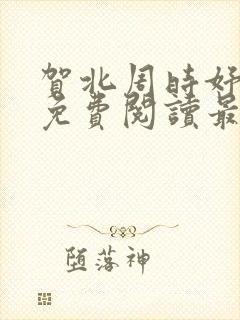 賀北周時好
免費閱讀最
堕落神